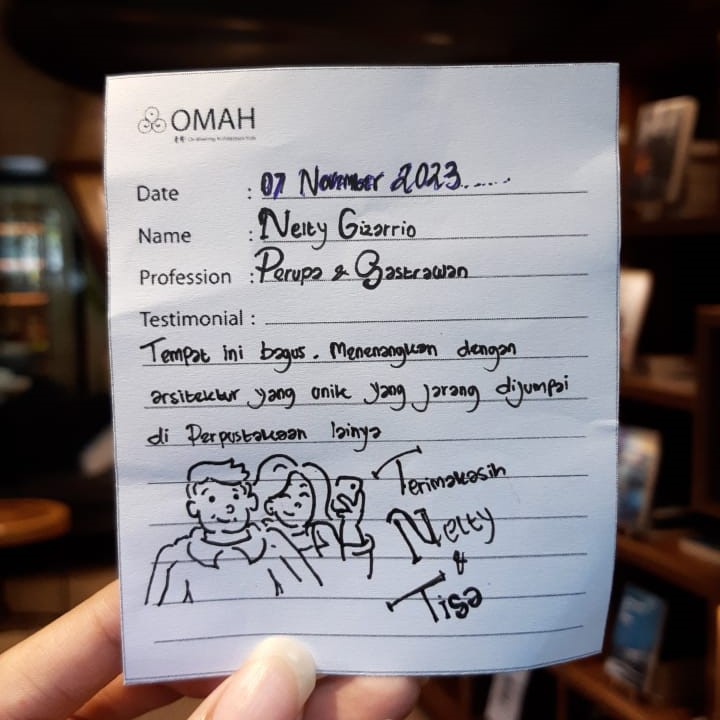 OMAH
Date : 07 November 2023.......
Name : Nelty Gizarrio
Profession : Perupa & Sastrawan
Testimonial :
Tempat ini bagus. Menenangkan dengan
arsitektur yang unik yang jarang dijumpai
di Perpustakaan lainya
Terimakasih
Nelty
&
Tisa